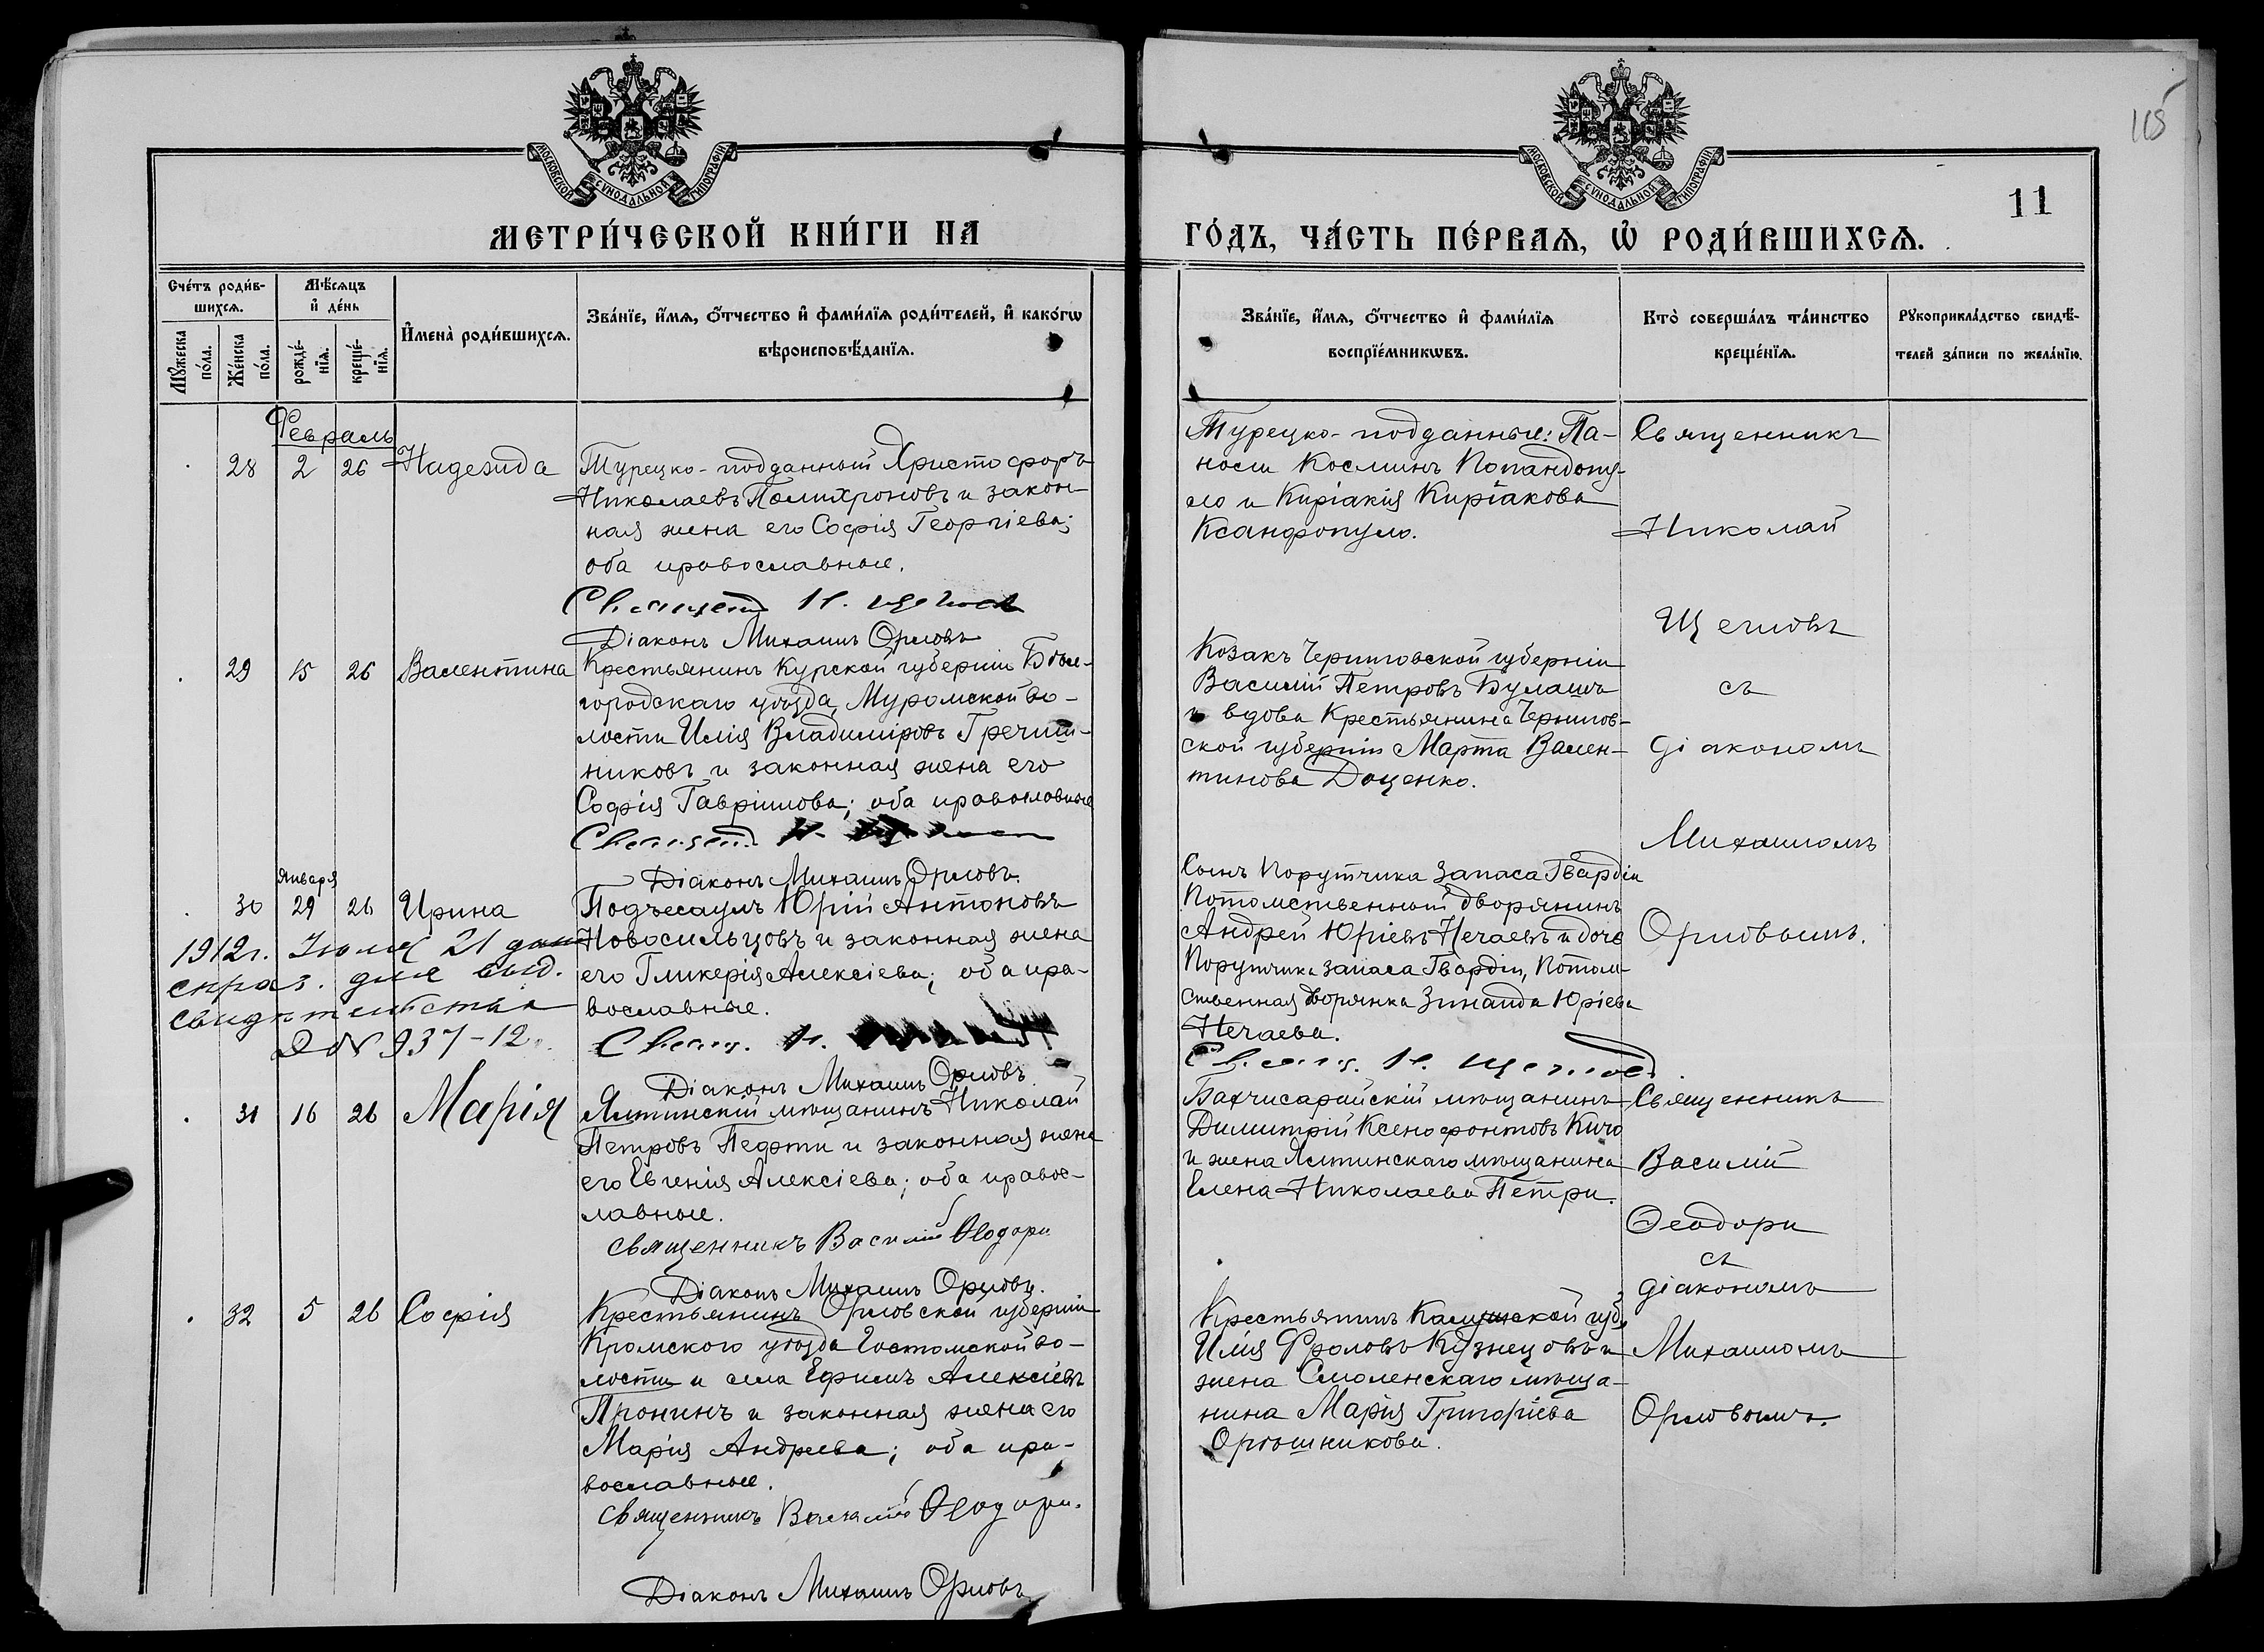 115
МОСКОВСКОЙ СУНОДАЛЬНОЙ ТИПОГРАФІИ
МОСКОВСКОЙ СУНОДАЛЬНОЙ ТИПОГРАФІИ
11
МЕТРИ́ЧЕСКОЙ КНИ́ГИ НА
ГО́ДЪ, ЧА́СТЬ ПЕ́РВАЯ, Ѡ҆ РОДИ́ВШИХСЯ.
Сче́тъ роди́в-
шихся.
Мꙋжеска по́ла.
Же́нска по́ла.
Мѣ́сяцъ
и҆ де́нь
рожде́-
нїя.
креще́-
нїя.
И҆мена̀ роди́вшихся.
Зва́нїе, и҆́мя, ѻ҆́тчество и҆ фами́лїя роди́телей, и҆ како́гѡ
вѣроисповѣ́данїя.
Зва́нїе, и҆́мя, ѻ҆́тчество и҆ фами́лїя
воспрїе́мникѡвъ.
Кто̀ соверша́лъ та́инство
креще́нїя.
Рꙋкоприкла́дство свидѣ́-
телей за́писи по жела́нїю.
Февраль
28 2 26 Надежда
Турецко-подданный Христофоръ
Николаевъ Полихроновъ и закон-
ная жена его Софія Георгіева;
оба православные.
Священ. Н. Щегловъ
Діаконъ Михаилъ Орловъ
Турецко-подданные: Па-
носи Косминъ Попандопу-
ло и Киріакія Киріакова
Ксанфопуло.
Священникъ
Николай
Щегловъ
съ
діакономъ
Михаиломъ
Орловымъ.
29 15 26 Валентина
Крестьянинъ Курской губерніи Бѣле-
городскаго уѣзда, Муромской во-
лости Илія Владиміровъ Гречиш-
никовъ и законная жена его
Софія Гавріилова; оба православные
Священ. Н.
Діаконъ Михаилъ Орловъ.
Козакъ Черниговской губерніи
Василій Петровъ Булашъ
и вдова Крестьянина Чернигов-
ской губерніи Марта Вален-
тинова Доценко.
Января
30 29 26 Ирина
1912 г. Іюля 21 дня
справ. для выд.
свидѣтельства
№ 937-12
Подъесаулъ Юрій Антоновъ
Новосильцовъ и законная жена
его Гликерія Алексіева; оба пра-
вославные.
Свящ. Н.
Діаконъ Михаилъ Орловъ
Сынъ Порутчика запаса Гвардіи
Потомственный дворянинъ
Андрей Юріевъ Нечаевъ и дочь
Порутчика запаса Гвардіи, Потом-
ственная дворянка Зинаида Юріева
Нечаева.
Свящ. Н. Щегловъ.
31 16 26 Марія
Ялтинскій мѣщанинъ Николай
Петровъ Пефти и законная жена
его Евгенія Алексіева; оба правос-
лавные.
Священникъ Василій Ѳеодори
Діаконъ Михаилъ Орловъ.
Бахчисарайскій мѣщанинъ
Димитрій Ксенофонтовъ
и жена Ялтинскаго мѣщанина
Елена Николаева Петри.
Священникъ
Василій
Ѳеодори
съ
діакономъ
Михаиломъ
Орловымъ.
32 5 26 Софія
Крестьянинъ Орловской губерніи
Кромского уѣзда Гостомской во-
лости и села Ефимъ Алексіевъ
Пронинъ и законная жена его
Марія Андреева; оба пра-
вославные.
Священникъ Василій Ѳеодори.
Діаконъ Михаилъ Орловъ
Крестьянинъ Калужской губ.
Илія Фроловъ Кузнецовъ и
жена Смоленскаго мѣща-
нина Марія Григоріева
Орѣшникова.